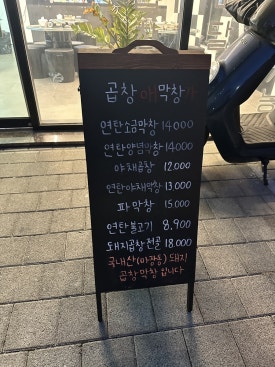 곱창 막창
연탄소금막창 14.000
연탄양념막창 14.000
야채곱창 12.000
연탄야채막창 13.000
파막창 15.000
연탄불고기 8,900
돼지곱창전골 18.000
국내산 돼지
곱창 막창 입니다